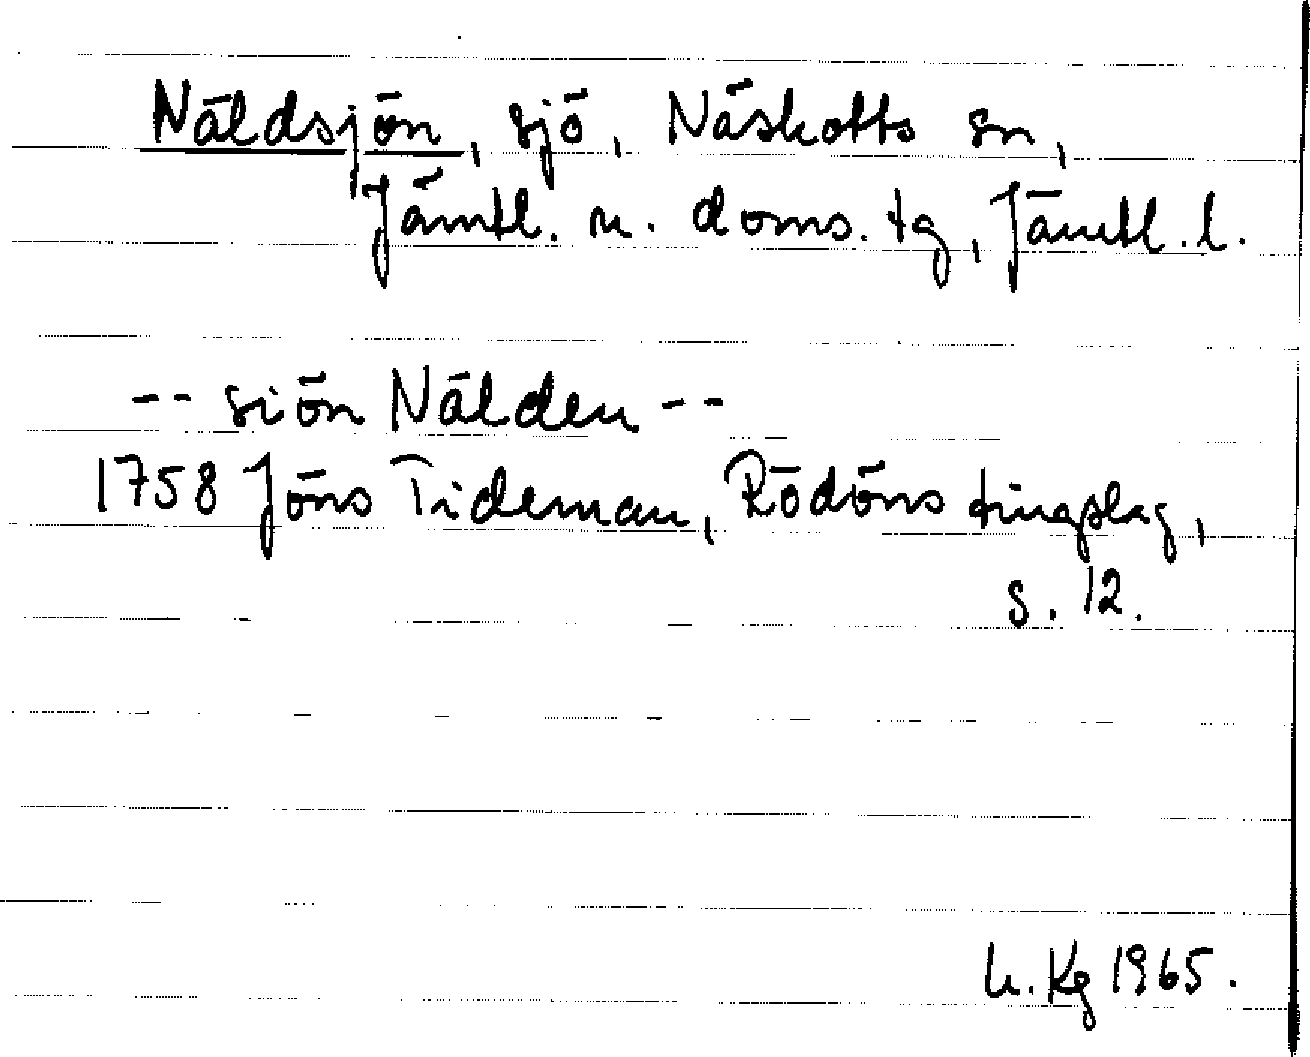 Näldsjön, sjö, Näskotts sn,
Jämtl. n. doms. tg, Jämtl. l.
-- siön Nälden --
1758 Jöns Tideman, Rödöns tingslag,
s. 12.
h. Kg 1965.